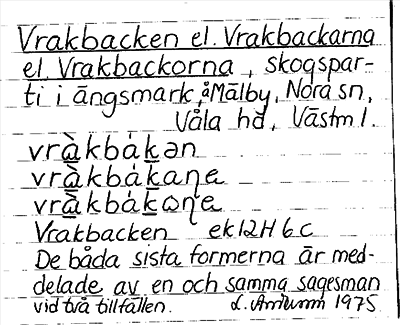 Vrakbacken el. Vrakbackarna
el. Vrakbackorna, skogspar-
ti i ängsmark, å Mälby, Nora sn,
Våla hd, Västml.
vràkbákən
vràkbákaɳa
vràkbákoɳa
Vrakbacken ek 12H 6c
De båda sista formerna är med-
delade av en och samma sagesman
vid två tillfällen. 1975